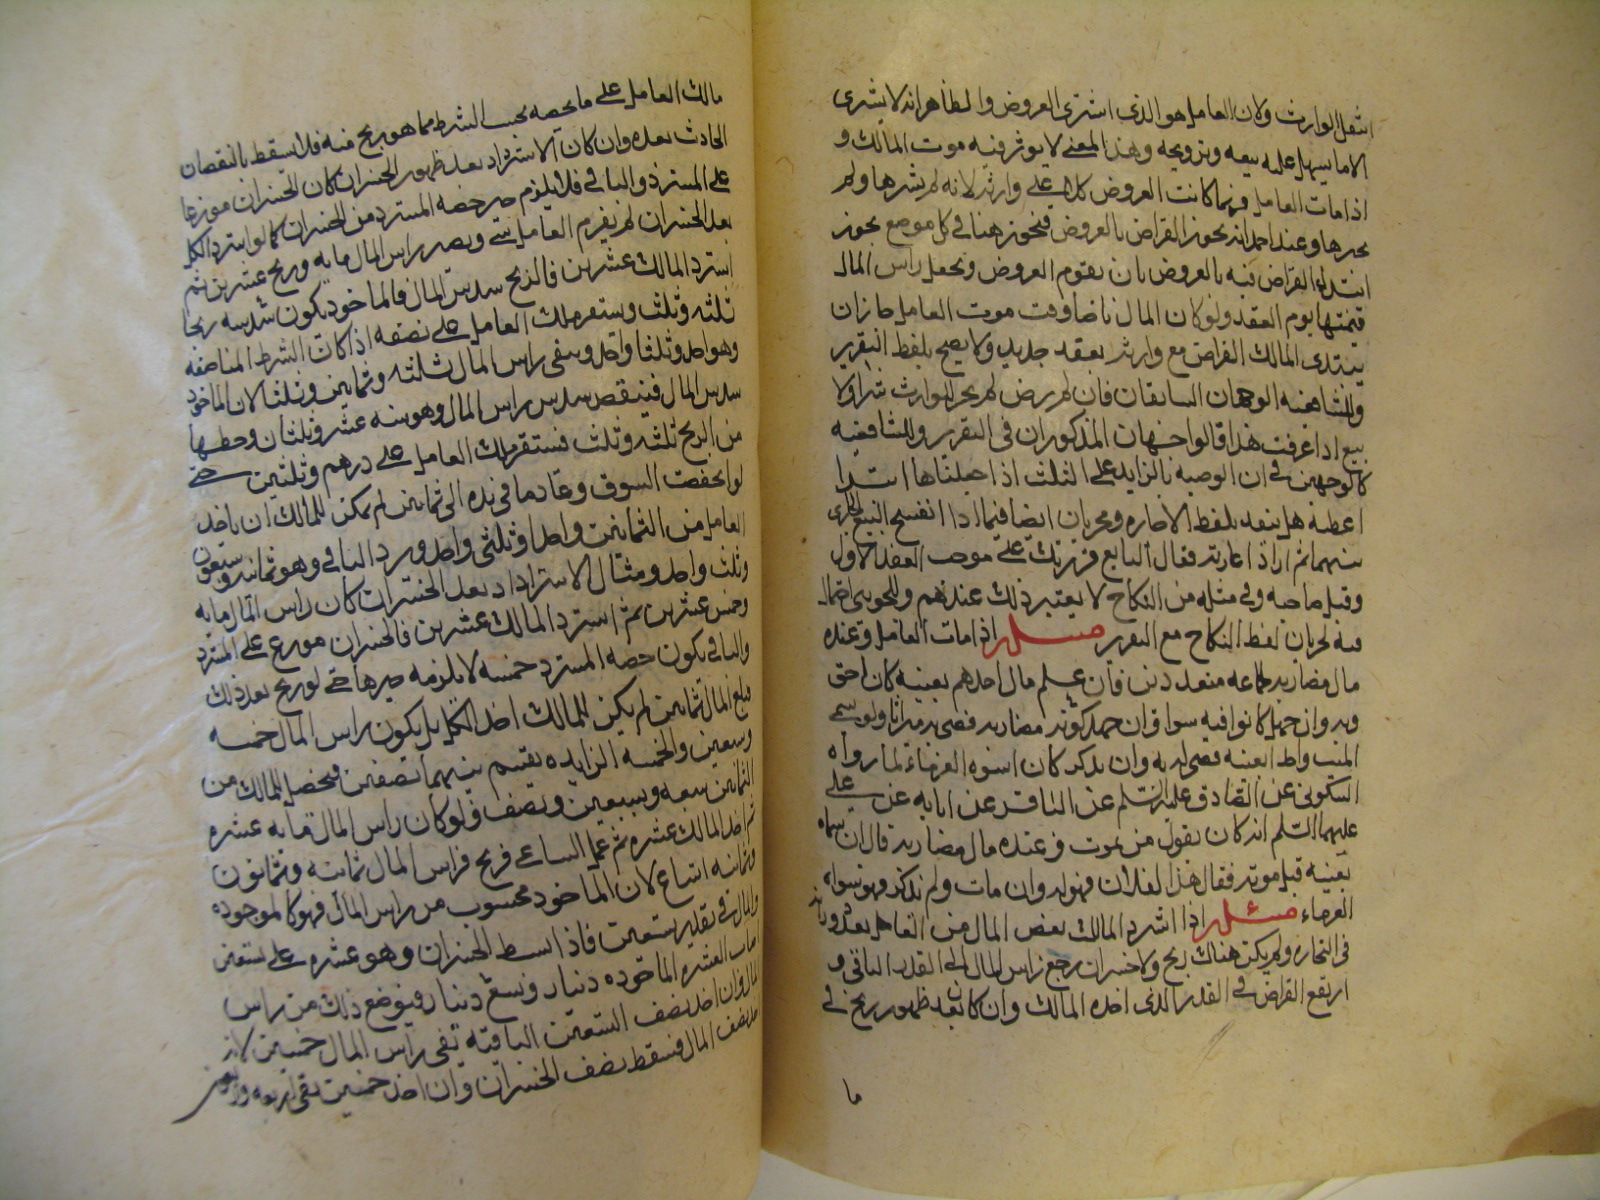 انتقل الوارث ولان العامل هو الذي اشترى العروض والظاهر انه لا يشرى
الا ما يسهل عليه بيعه وترويجه وهذا المعنى لا يوثر فيه موت المالك و
اذا مات العامل فربما كانت العروض كلا على وارثه لانه لم يشرها ولم
يخبرها وعند احمد انه يجوز القراض بالعروض فيجوز هنا في كل موضع يجوز
ابتداء القراض فيه بالعروض بان يقوم العروض ونجعل راس المال
قيمتها يوم العقد ولو كان المال ناضا وقت موت العامل جاز ان
يبتدى المالك القراض مع وارثه بعقد جديد ولا يصح بلفظ التقرير
وللشافعية الوجهان السابقان فان لم يرض لم يجز للوارث شراء ولا
بيع اذا عرفت هذا قالوا الوجهان المذكوران في التقرير وللشافعيه
كالوجهين في ان الوصيه بالزايد على الثلث اذا جعلناها ابتدا
اعطيه هل ينفد بلفظ الاجازه ويجريان ايضا فيما اذا انفسخ البيع الجارى
بينهما ثم ارادا اعادته فقال البايع قررتك على موجب العقد الاول
وقبل صاحبه وفي مثله من النكاح لا يعتبر ذلك عندهم وللجوينى احتمال
فيه لجريان لفظ النكاح مع التقرير مسئله اذا مات العامل وعنده
مال مضاربه لجماعه متعددين فان علم مال احدهم بعينه كان احق
وبه وان جهل كانوا فيه سوا فان جهل كونه مضاربه قضى به ميراثا ولو سمى
الميت واحدا بعينه قضى له به وان لم يذكر كان اسوه الغرماء لما رواه
السكونى عن الصادق عليه السلم عن الباقر عن ابايه عن على
عليهما السلم انه كان يقول من يموت وعنده مال مضاربه قال ان سماه
بعينه قبل موته فقال هذا لفلان فهو له وان مات ولم يذكر فهو اسوه
الغرماء مسئله اذا استرد المالك بعض المال من العامل بعد دورانه
في التجاره ولم يكن هناك ربح ولا خسران رجع راس المال الى القدر الباقى و
ارتفع القراض في القدر الذى اخذه المالك وان كان بعد ظهور ربح في
ما
مالك العامل على ما يخصه بحسب الشرط مما هو ربح فيه فلا يسقط بالنقصان
الحادث بعده وان كان الاسترداد بعد ظهور الخسران كان الخسران موزعا
على المسترد والباقى فلا يلزم جبر حصه المسترد من الخسران كما لو استرد الكل
بعد الخسران لم يغرم العامل شئ ويصير راس المال مايه وربح عشرين ثم
استرد المالك عشرين فالربح سدس المال فالماخوذ يكون سدسه ربحا
ثلثه وثلث ويستقر ملك العامل على نصفه اذا كان الشرط المناصفه
وهو واحد وثلثا واحد ويبقى راس المال ثلثه وثمانين وثلثا لان الماخوذ
سدس المال فينقص سدس راس المال وهو سته عشر وثلثان وحظها
من الربح ثلثه وثلث فيستقر ملك العامل على درهم وثلثين حتى
لو انخفضت السوق وعاد ما في يده الى ثمانين لم يكن للمالك ان ياخذ
العامل من الثمانين واحدا وثلثى واحد ويرد الباقى وهو ثمانيه وسبعون
وثلث واحد ومثال الاسترداد بعد الخسران كان راس المال مايه
وخسر عشرين ثم استرد المالك عشرين فالخسران موزع على المسترد
والباقى يكون حصه المسترد خمسه لا يلزمه جبرها حتى لو ربح بعد ذلك
فبلغ المال ثمانين لم يكن للمالك اخذ الكل بل يكون راس المال خمسه
وسبعين والخمسه الزايده يقسم بينهما نصفين فيحصل للمالك من
الثمانين سبعه وسبعين ونصف ولو كان راس المال مايه عشره
ثم اخذ المالك عشره ثم عمل الساعى فربح فراس المال ثمانيه وثمانون
وثمانيه اتساع لان الماخوذ محسوب من راس المال فهو كالموجوده
والمال في تقدير تسعين فاذا بسط الخسران وهو عشره على تسعين
اصاب العشره الماخوذه دينار وتسع دينار فيوضع ذلك من راس
المال وان اخذ نصف التسعين الباقيه بقى راس المال خمسين لانه
اخذ نصف المال فسقط نصف الخسران وان اخذ خمسين بقى اربعه واربعون